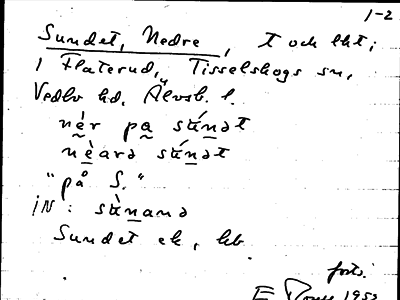 1-2
Sundet, Nedre, t och lht;
i Flaterud, Tisselskogs sn,
Vedbo hd. Älvsb. l.
nẹ́r pa sú̱nət
nèarə sú̱nət
"på S."
IN: sù̱nanə
Sundet ek, kb
forts.